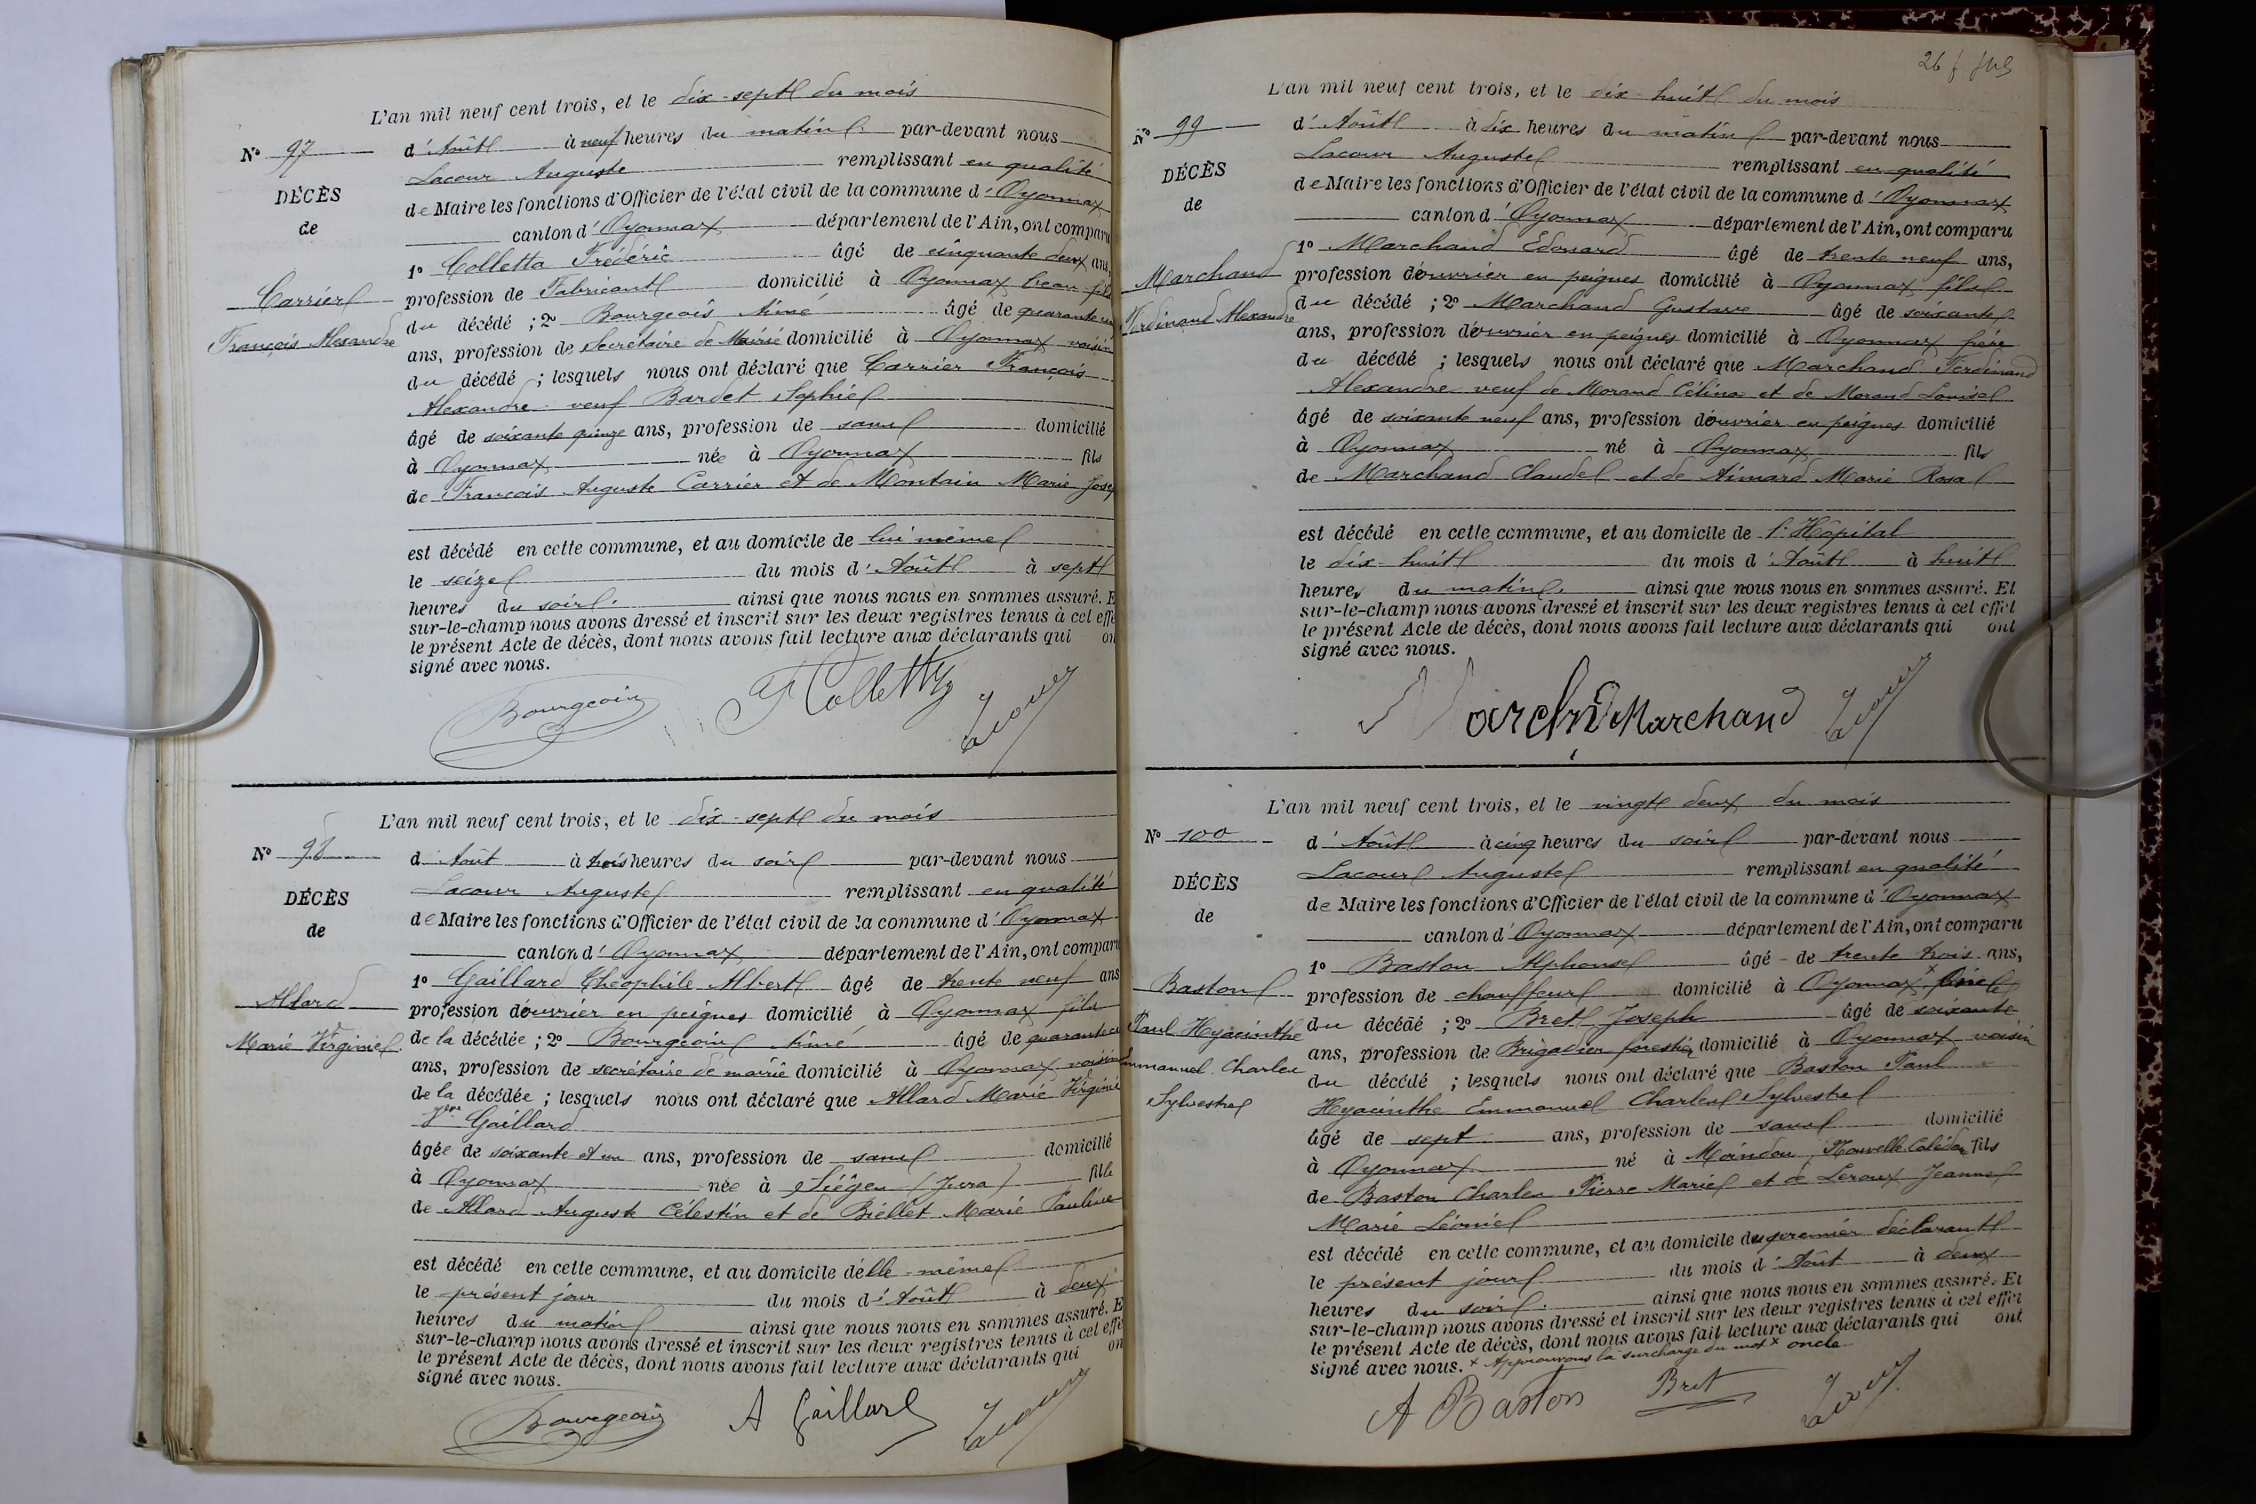 L'an mil neuf cent trois, et le dix-sept du mois
N° 97
d'Août à neuf heures du matin par-devant nous
DÉCÈS
de
Carrier
François Alexandre
Lacour Auguste remplissant en qualité
de Maire les fonctions d'Officier de l'état civil de la commune d'Oyonnax
canton d'Oyonnax département de l'Ain, ont comparu
1° Colletta Frédéric âgé de cinquante deux ans,
profession de Fabricant domicilié à Oyonnax beau-fils
du décédé ; 2° Bourgeois Aimé âgé de quarante un
ans, profession de Secrétaire de Mairie domicilié à Oyonnax voisin
du décédé ; lesquels nous ont déclaré que Carrier François
Alexandre veuf Bardet Sophie
âgé de soixante quinze ans, profession de sans domicilié
à Oyonnax née à Oyonnax fils
de François Auguste Carrier et de Montain Marie
est décédé en cette commune, et au domicile de lui même
le seize du mois d'Août à sept
heures du soir. ainsi que nous nous en sommes assuré. E
sur-le-champ nous avons dressé et inscrit sur les deux registres tenus à cet effe
le présent Acte de décès, dont nous avons fait lecture aux déclarants qui on
signé avec nous.
Bourgeois F Colletta Lacour
L'an mil neuf cent trois, et le dix-sept du mois
N° 98
d'Août à trois heures du soir par-devant nous
DÉCÈS
de
Allard
Marie Virginie
Lacour Auguste remplissant en qualité
de Maire les fonctions d'Officier de l'état civil de la commune d'Oyonnax
canton d'Oyonnax département de l'Ain, ont comparu
1° Gaillard Théophile Albert âgé de trente neuf ans
profession d'ouvrier en peignes domicilié à Oyonnax fils
de la décédée ; 2° Bourgeois Aimé âgé de quarante un
ans, profession de secrétaire de mairie domicilié à Oyonnax voisin
de la décédée ; lesquels nous ont déclaré que Allard Marie Virginie
Vve Gaillard
âgée de soixante et un ans, profession de sans domicilié
à Oyonnax née à Siéges (Jura) fille
de Allard Auguste Célestin et de Biellet Marie Pauline
est décédé en cette commune, et au domicile d'elle-même
le présent jour du mois d'Août à deux
heures du matin ainsi que nous nous en sommes assuré. E
sur-le-champ nous avons dressé et inscrit sur les deux registres tenus à cet effe
le présent Acte de décès, dont nous avons fait lecture aux déclarants qui on
signé avec nous.
Bourgeois A Gaillard Lacour
26
L'an mil neuf cent trois, et le dix-huit du mois
N° 99
d'Août à dix heures du matin par-devant nous
DÉCÈS
de
Marchand
Ferdinand Alexandre
Lacour Auguste remplissant en qualité
de Maire les fonctions d'Officier de l'état civil de la commune d'Oyonnax
canton d'Oyonnax département de l'Ain, ont comparu
1° Marchand Édouard âgé de trente neuf ans,
profession d'ouvrier en peignes domicilié à Oyonnax fils
du décédé ; 2° Marchand Gustave âgé de soixante
ans, profession d'ouvrier en peignes domicilié à Oyonnax frère
du décédé ; lesquels nous ont déclaré que Marchand Ferdinand
Alexandre veuf de Morand Célina et de Morand Louise
âgé de soixante neuf ans, profession d'ouvrier en peignes domicilié
à Oyonnax né à Oyonnax fils
de Marchand Claude et de Aimard Marie Rosa
est décédé en cette commune, et au domicile de l'Hôpital
le dix-huit du mois d'Août à huit
heures du matin. ainsi que nous nous en sommes assuré. Et
sur-le-champ nous avons dressé et inscrit sur les deux registres tenus à cet effet
le présent Acte de décès, dont nous avons fait lecture aux déclarants qui ont
signé avec nous.
Marchand Marchand Lacour
L'an mil neuf cent trois, et le vingt deux du mois
N° 100
d'Août à cinq heures du soir par-devant nous
DÉCÈS
de
Baston
Paul Hyacinthe
Emmanuel Charles
Sylvestre
Lacour Auguste remplissant en qualité
de Maire les fonctions d'Officier de l'état civil de la commune d'Oyonnax
canton d'Oyonnax département de l'Ain, ont comparu
1° Baston Alphonse âgé de trente trois ans,
profession de chauffeur domicilié à Oyonnax × oncle
du décédé ; 2° Bret Joseph âgé de soixante
ans, profession de Brigadier forestier domicilié à Oyonnax voisin
du décédé ; lesquels nous ont déclaré que Baston Paul
Hyacinthe Emmanuel Charles Sylvestre
âgé de sept ans, profession de sans domicilié
à Oyonnax né à Moindou, Nouvelle Calédon fils
de Baston Charles Pierre Marie et de Leroux Jeanne
Marie Léonie
est décédé en cette commune, et au domicile du premier déclarant
le présent jour du mois d'Août à deux
heures du soir. ainsi que nous nous en sommes assuré. Et
sur-le-champ nous avons dressé et inscrit sur les deux registres tenus à cet effet
le présent Acte de décès, dont nous avons fait lecture aux déclarants qui ont
signé avec nous. × Approuvons la surcharge du mot × oncle
A Baston Bret Lacour